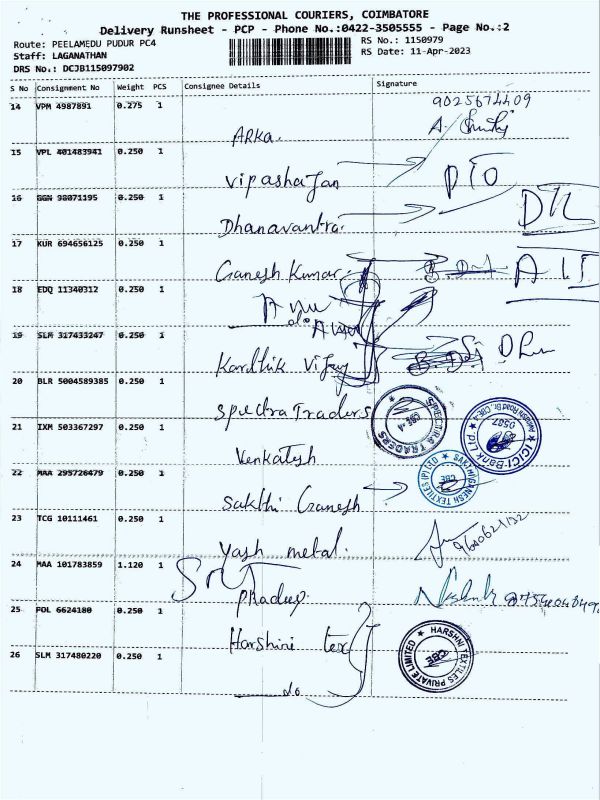 THE PROFESSIONAL COURIERS, COIMBATORE
Delivery Runsheet - PCP - Phone No.:0422-3505555 - Page No.:2
Route: PEELAMEDU PUDUR PC4
RS No.: 1150979
Staff: LAGANATHAN
RS Date: 11-Apr-2023
DRS No.: DCJB115097902
S No Consignment No Weight PCS Consignee Details Signature
14 VPM 4987891 0.275 1
9025674409
ARKA
15 VPL 401483941 0.250 1
Vipashajan
PTO
16 GGN 98071195 0.250 1
Dhanavantra
17 KUR 694656125 0.250 1
Ganesh Kumar
18 EDQ 11340312 0.250 1
do
19 SLM 317433247 0.250 1
Karthik Vijay
20 BLR 5004589385 0.250 1
Spectra Traders
SPECTRA TRADERS
CBE-4
21 IXM 503367297 0.250 1
Venkatesh
ICICI-Bank
0507
22 MAA 295726479 0.250 1
Sakthi Ganesh
SAKTHIGANESH TEXTILES (P) LTD
CBE
23 TCG 10111461 0.250 1
Yash metal.
24 MAA 101783859 1.120 1
Pradeep
25 POL 6624180 0.250 1
Harshini tex
HARSHNI TEXTILES PRIVATE LIMITED
CBE
26 SLM 317480220 0.250 1
do